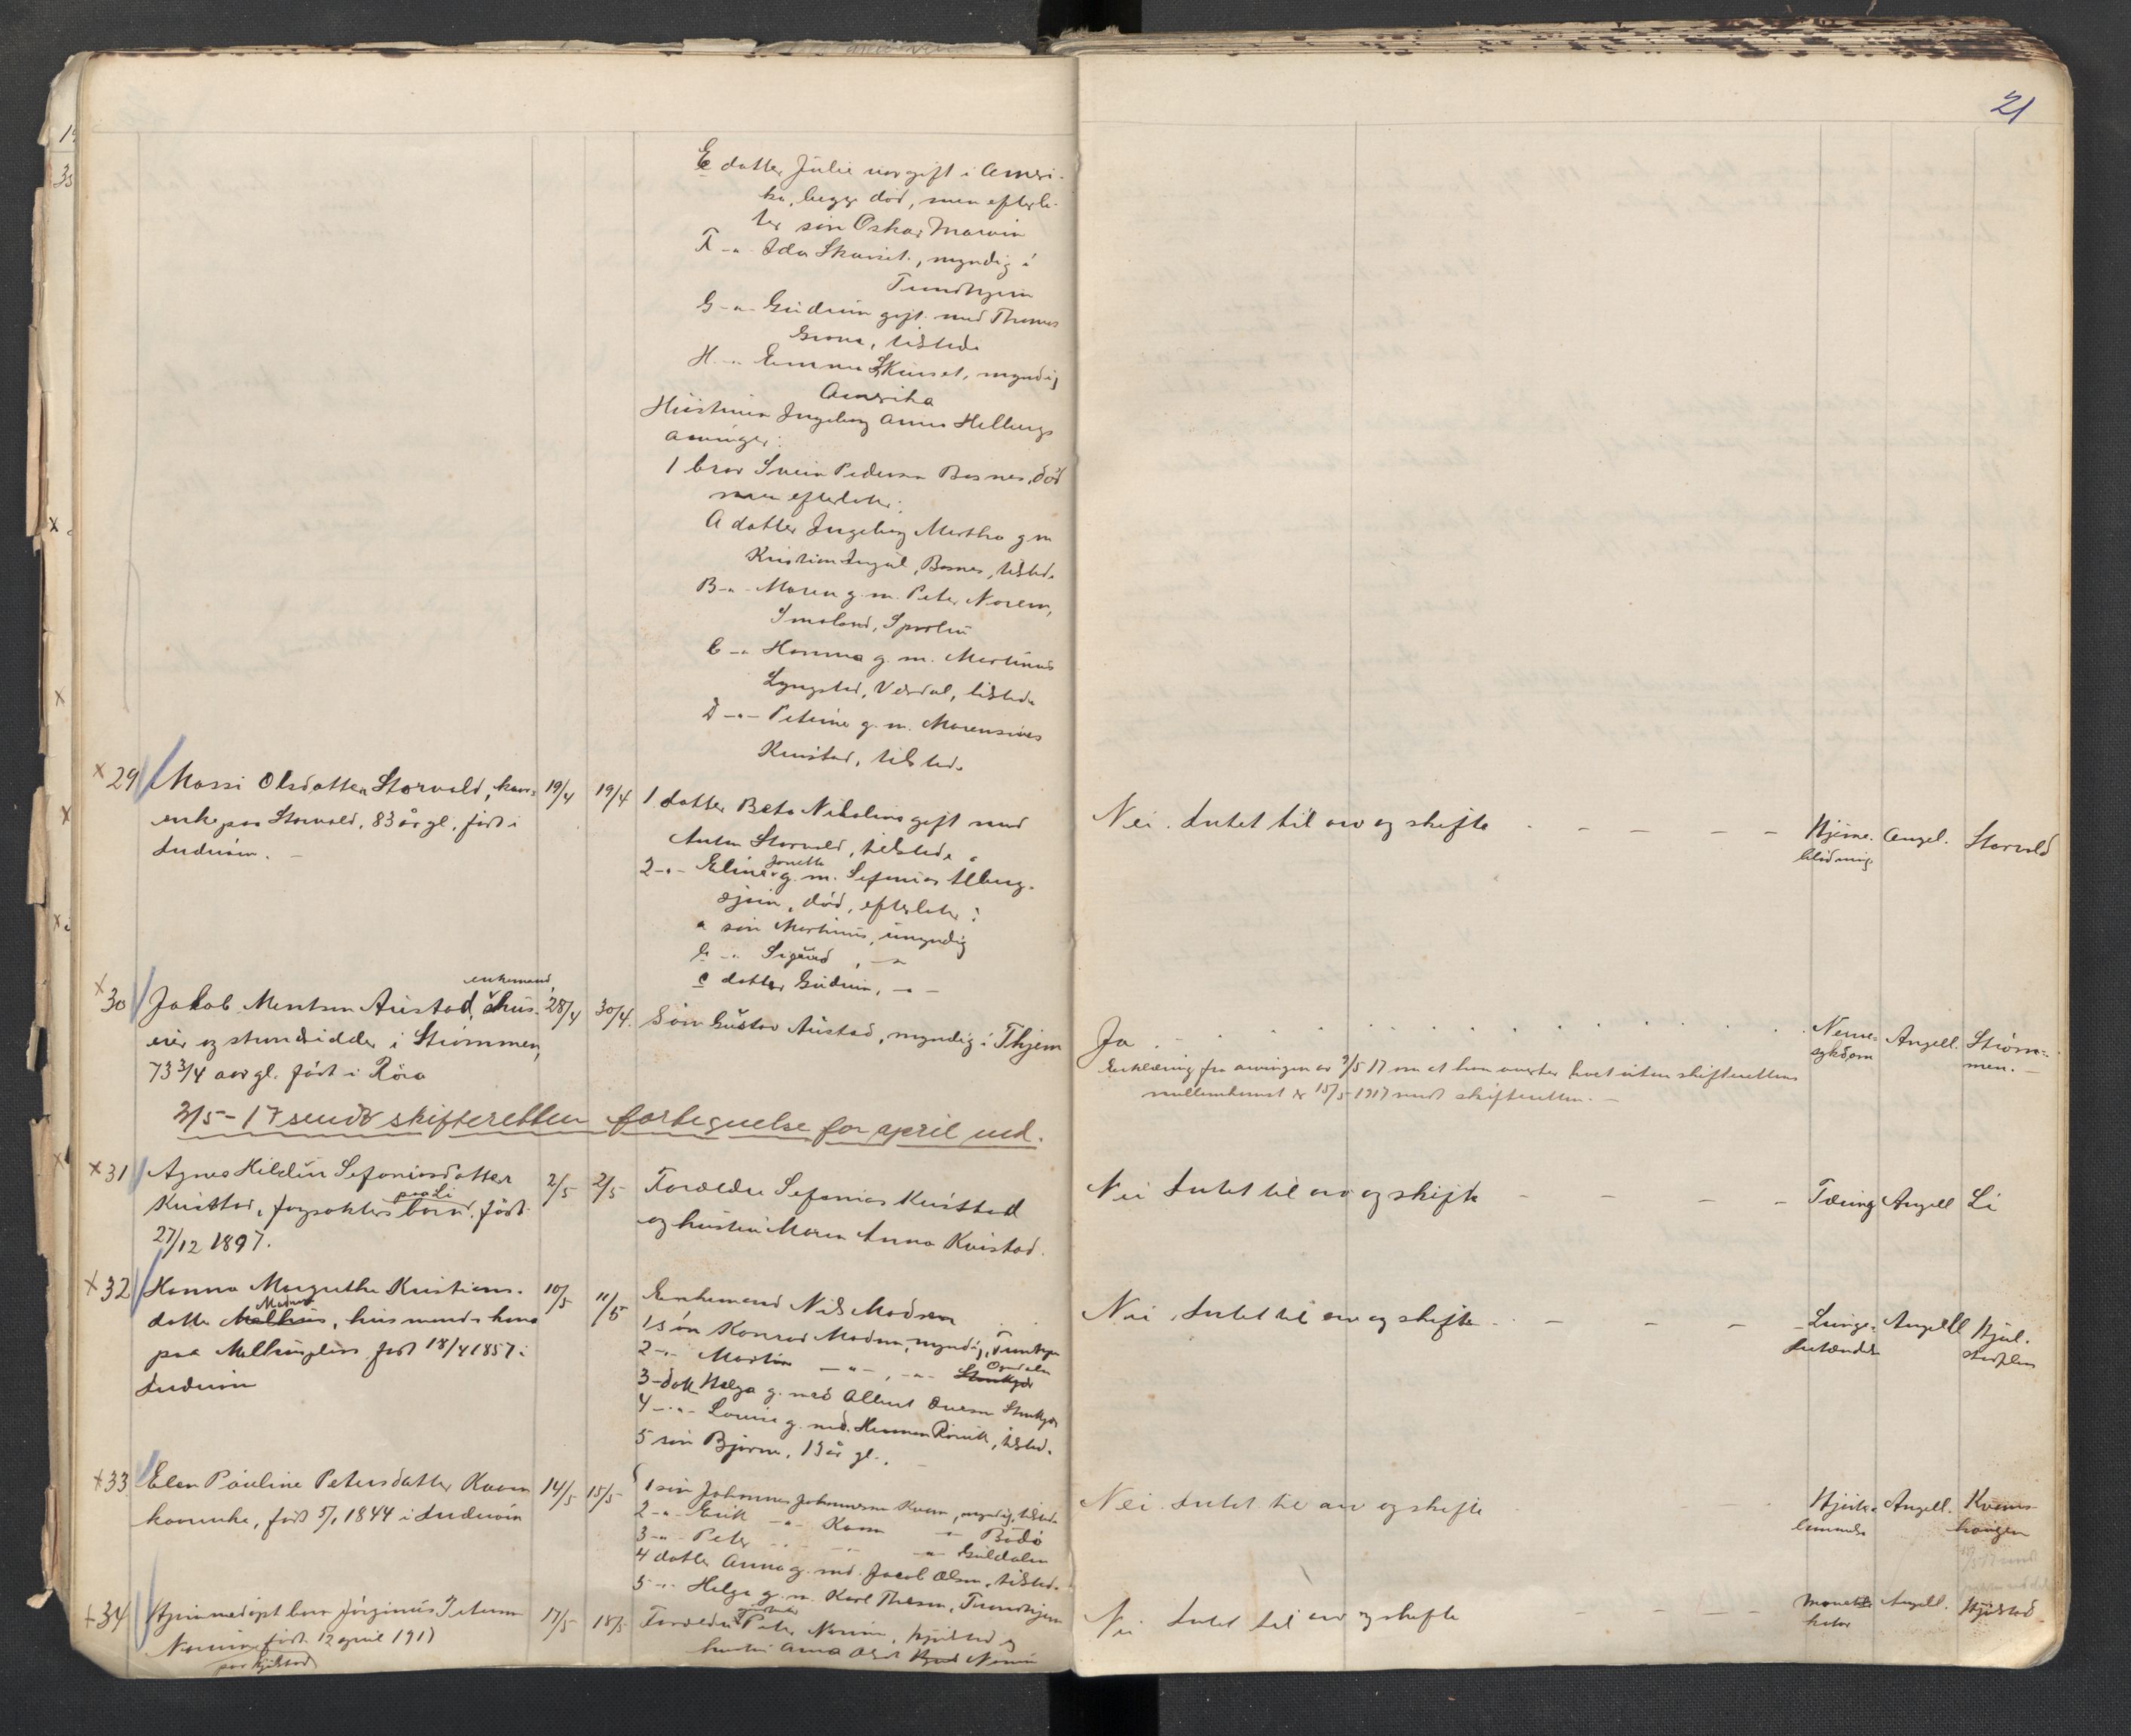 21
E datter Julie var gift i Ameri-
ka, begge död, men efterla-
ter sön Oskar Marvin
F -"- Ida Skavset, myndig i
Trondhjem
G -"- Gudrun gift med Thomas
tilstede
H -"- Emma Skevset, myndig
Amerika
Hustruen Ingeborg Annes Hellings
arvinger:
1 bror Svein Pedersen Bosnes, död
men efterlater:
A datter Ingeborg Martha g m
Kristian Bosnes, tilstede
B -"- Maren g. m. Peter Norem,
Smoland, Sparbu
C -"- Hanna g. m. Martinus
Lyngstad, Verdal, tilstede
D -"- Petrine g. m. Marensius
Kvistad, tilstede
x 29 Massi Olsdatter Storvold, kaar-
enke paa Storvold, 83 år gl., född i
Inderöin. -
19/4 19/4
1 datter Beta Nikolina gift med
Anton Storvold, tilstede
2 -"- Eline Jonette g. m. Sefanias Ulberg-
sjøen, död, efterlater:
a sön Martinus, umyndig
b -"- Sigurd, -"-
c datter Gudrun, -"-
Nei. Intet til arv og skifte - - - - -
Hjerne-
blödning
Angel.
Storvold
x 30 Jakob Mentsen Austad, enkemand, hus-
eier og strandsidder i Strömmen,
73 3/4 aar gl. född i Röra
28/4 30/4
Sön Gustav Austad, myndig i Thjem
Ja
Erklæring fra arvingen av 3/5 17 om at han overtar boet uten skifterettens
mellemkomst er 15/5 1917 sendt skifteretten. -
Nerve-
sykdom
Angell.
Ström-
men. -
3/5 - 17 sendt skifteretten fortegnelse for april md.
x 31 Agnes Hildur Sefaniasdatter
Kvistad, forpakters barn paa Li. född
27/12 1897.
2/5 2/5
Forældre Sefanias Kvistad
og hustru Maren Anna Kvistad.
Nei Intet til arv og skifte - - - -
Tæring Angell Li
x 32 Hanna Margrethe Kristians-
datter Melhus Madsen, husmands kone
paa Melhusplass född 18/4 1857 i
Inderöin
10/5 11/5
Enkemand Nils Madsen
1 sön Konrad Madsen, myndig, Trondhjem
2 -"- Martin -"-, -"- Steinkjer Ogndalen
3 - datt Helga g. med Albert Steinkjer
4 -"- Louise g. med. Herman Rörvik, tilsted.
5 sön Bjarne, 13 år gl.
Nei, Intet til arv og skifte - - - -
Lunge-
betændelse
Angell
Hjul-
stadplass
x 33 Elen Pauline Petersdatter Kvam
kaarenke, född 5/1 1844 i Inderöin
14/5 15/5
1 sön Johannes Johannesen Kvam, myndig, tilstede
2 -"- Erik -"- Kvam -"- Bodö
3 -"- Peter -"- -"- -"- Guldalen
4 datter Anna g. med. Jacob Olsen, tilsted.
5 -"- Helga g. m. Karl Thesen, Trondhjem
Nei. Intet til arv og skifte
Hjerte-
lammelse
Angell.
Kvams-
haugen
x 34 Hjemmedöpt barn Jörginus Petersen
Norum född 12 april 1917
paa Hjelstad
17/5 18/5
Forældre Peter Norum, Hjulstad og
hustru Anna Olsd. Norum
Nei Intet til arv og skifte - - - -
Mave-
katar
Angell.
Hjulstad